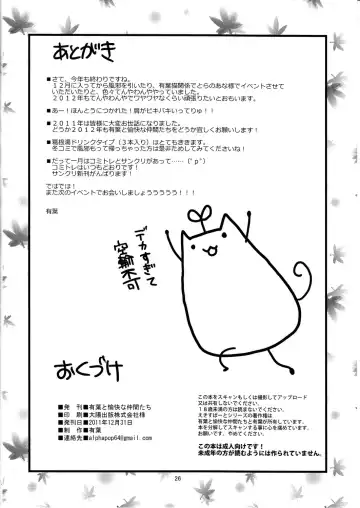 あとがき
■さて、今年も終わりですね。
12月に入ってから風邪を引いたり、有葉猫関係でとらのあな様でイベントさせて
いただいたりと、色々てんやわんややっていました。
2012年もてんやわんやでワヤワヤなくらい頑張りたいとおもいます。
■あー!ほんとうにつかれた!肩がビキバキいってりゅ!!
■2011年は皆様に大変お世話になりました。
どうか2012年も有葉と愉快な仲間たちをどうか宜しくお願いします!
■葛根湯ドリンクタイプ(3本入り)はとてもききます。
冬コミで風邪もって帰っちゃった方は是非ためしてみてくださいね!
■だって一月はコミトレとサンクリがあって……(゚p゚)
コミトレはいつもどおりです!
サンクリ新刊がんばります!
ではでは!
また次のイベントでお会いしましょううううう!!!
有葉
デカすぎて
空輸不可
おくづけ
■発　刊■有葉と愉快な仲間たち
■印　刷■大陽出版株式会社様
■発刊日■2011年12月31日
■制　作■有葉
■連絡先■alphapop64@gmail.com
この本をスキャンもしくは撮影してアップロード
又は共有しないでください。
18歳未満の方は読まないでください。
えきすぱーとシリーズの著作権は
有葉と愉快な仲間たちと有葉が所有しています。
本を分解してスキャンする事に心を痛めています。
お願いです、やめてください。
この本は成人向けです!
未成年の方が読むようには作られていません。
26